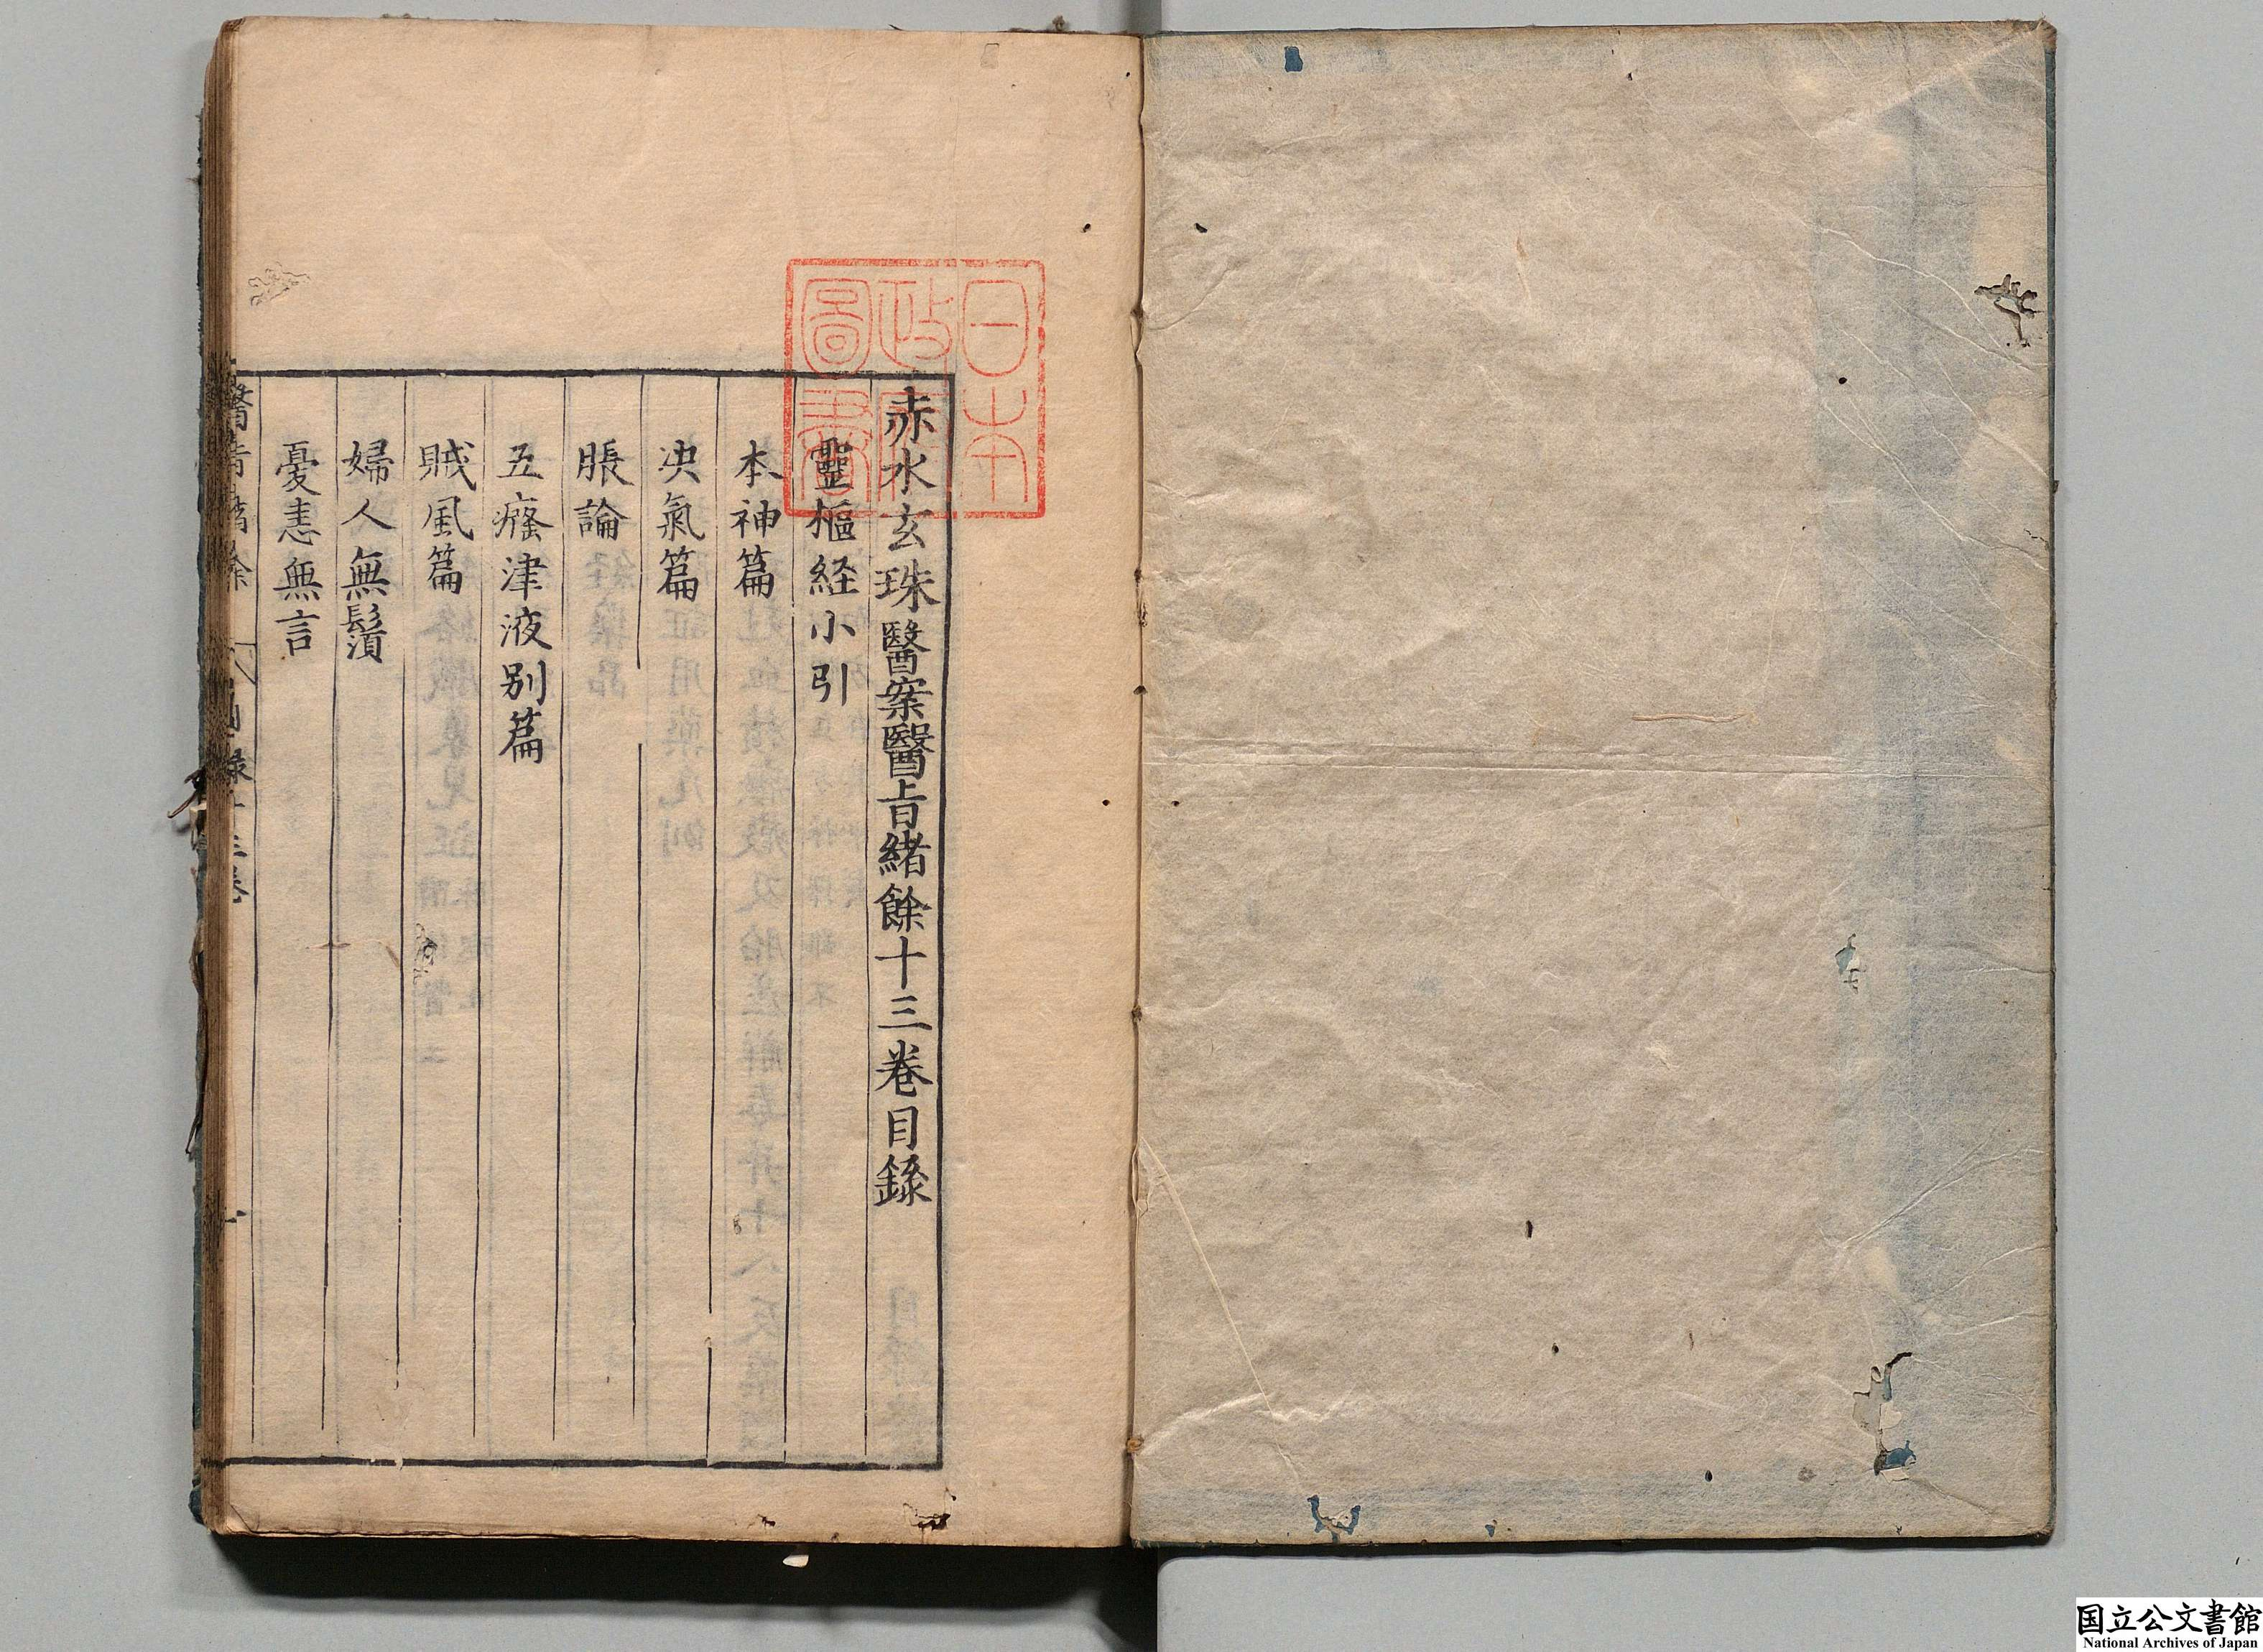 日本
政府
圖書
赤水玄珠醫案醫旨緒餘十三卷目錄
靈樞経小引
本神篇
決氣篇
脹論
五癃津液别篇
賊風篇
婦人無鬚
憂恚無言
国立公文書館
National Archives of Japan